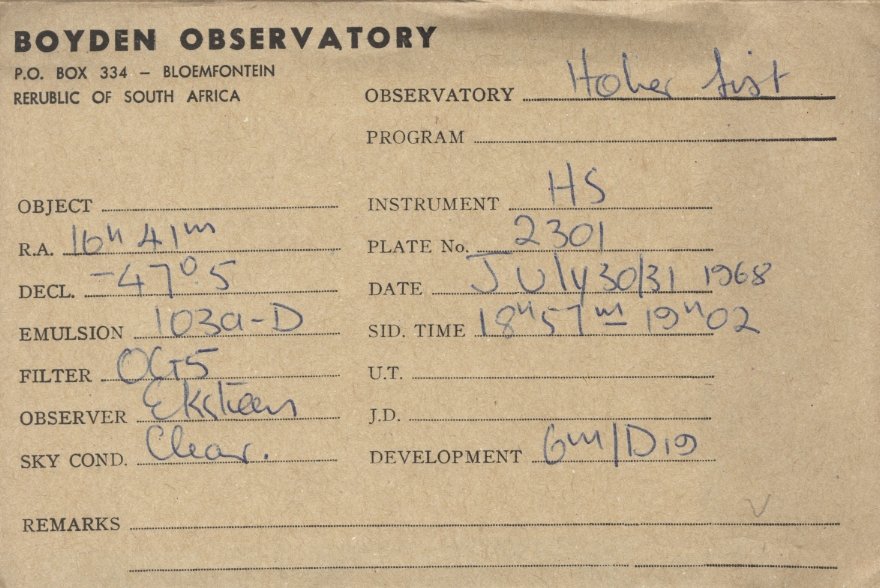 BOYDEN OBSERVATORY
P.O. BOX 334 – BLOEMFONTEIN
RERUBLIC OF SOUTH AFRICA
OBSERVATORY Hoher List
PROGRAM
OBJECT
INSTRUMENT HS
R.A. 16h 41m
PLATE No. 2301
DECL. -47°.5
DATE July 30/31 1968
EMULSION 103a-D
SID. TIME 18h 57m – 19h 02
FILTER OG5
U.T.
OBSERVER Eksteen
J.D.
SKY COND. Clear.
DEVELOPMENT 6m/D19
REMARKS